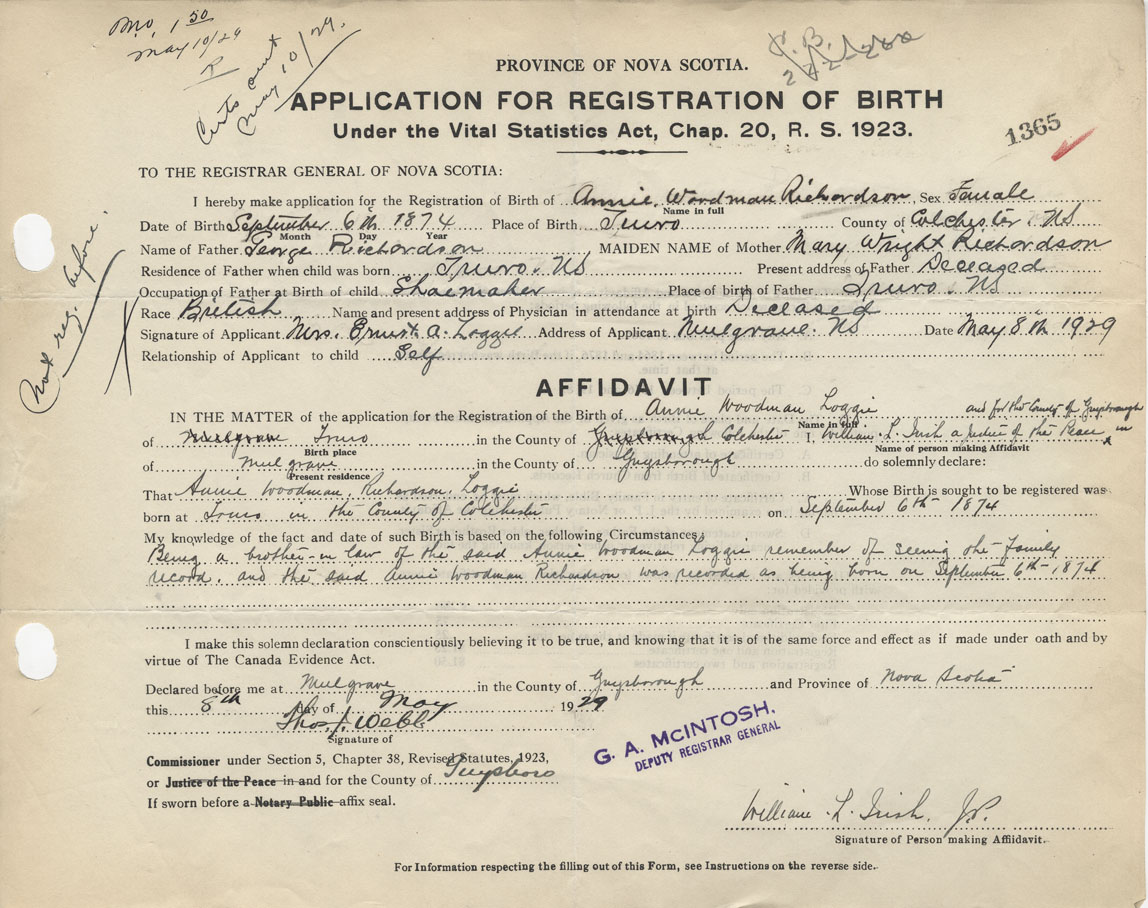 M.O. 1 50
May 10/29
R
Certs sent
May 10/29.
P.B.
PROVINCE OF NOVA SCOTIA.
APPLICATION FOR REGISTRATION OF BIRTH
Under the Vital Statistics Act, Chap. 20, R. S. 1923.
1365
TO THE REGISTRAR GENERAL OF NOVA SCOTIA:
I hereby make application for the Registration of Birth of Annie Woodman Richardson Sex Female
Name in full
Date of Birth September 6th 1874 Place of Birth Truro County of Colchester. NS
Month Day Year
Name of Father George Richardson MAIDEN NAME of Mother Mary Wright Richardson
Residence of Father when child was born Truro. NS Present address of Father Deceased
Occupation of Father at Birth of child Shoemaker Place of birth of Father Truro. NS
Race British Name and present address of Physician in attendance at birth Deceased
Signature of Applicant Mrs. Ernest A. Loggie Address of Applicant Mulgrave. NS Date May 8th 1929
Relationship of Applicant to child Self
Not reg. before
AFFIDAVIT
IN THE MATTER of the application for the Registration of the Birth of Annie Woodman Loggie and for the County of Guysborough
Name in full
of Mulgrave Truro in the County of Guysborough Colchester I, William L. Irish a Justice of the Peace in
Birth place Name of person making Affidavit
of Mulgrave in the County of Guysborough do solemnly declare:
Present residence
That Annie Woodman Richardson Loggie Whose Birth is sought to be registered was
born at Truro in the County of Colchester on September 6th 1874
My knowledge of the fact and date of such Birth is based on the following Circumstances:
Being a brother-in law of the said Annie Woodman Loggie remember of seeing the Family
record. and the said Annie Woodman Richardson was recorded as being born on September 6th 1874
I make this solemn declaration conscientiously believing it to be true, and knowing that it is of the same force and effect as if made under oath and by
virtue of The Canada Evidence Act.
Declared before me at Mulgrave in the County of Guysborough and Province of Nova Scotia
this 8th day of May 1929
Thos. J. Webb
Signature of
G. A. McINTOSH.
DEPUTY REGISTRAR GENERAL
Commissioner under Section 5, Chapter 38, Revised Statutes, 1923,
or Justice of the Peace in and for the County of Guysboro
If sworn before a Notary Public affix seal.
William L. Irish. J.P.
Signature of Person making Affiidavit.
For Information respecting the filling out of this Form, see Instructions on the reverse side.